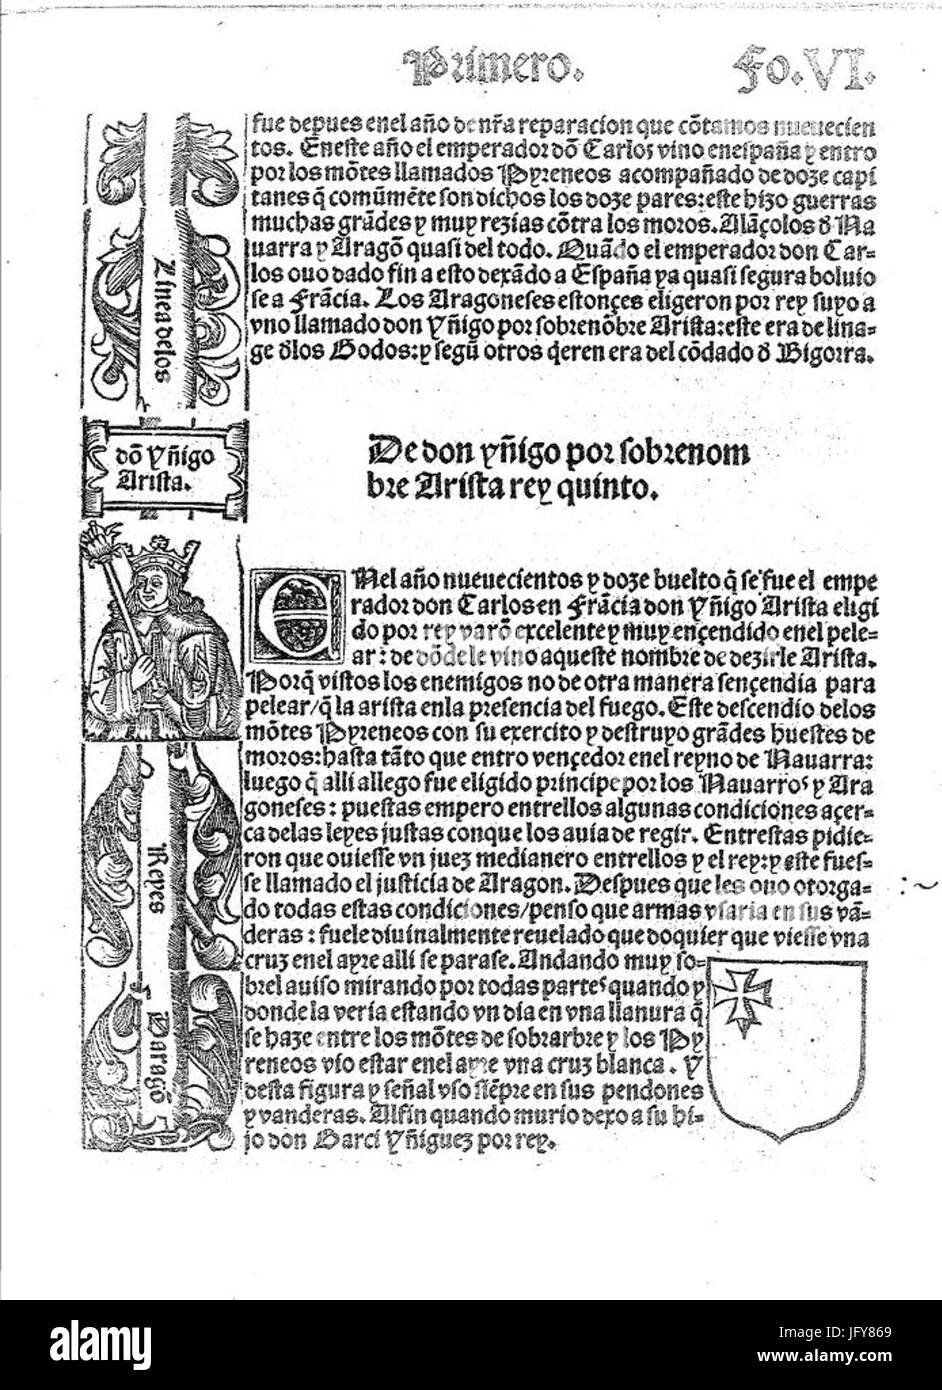 Primero. Fo. VI.
fue depues enel año de nr̃a reparacion que cõtamos nueuecien
tos. Eneste año el emperador dõ Carlos vino enespaña y entro
por los mõtes llamados Pyreneos acompañado de doze capi
tanes q̃ comũmẽte son dichos los doze pares: este hizo guerras
muchas grãdes y muy rezias cõtra los moros. Alãçolos d̃ Na
uarra y Aragõ quasi del todo. Quãdo el emperador don Car-
los ouo dado fin a esto dexãdo a España ya quasi segura boluio
se a Frãcia. Los Aragoneses estonçes eligeron por rey suyo a
vno llamado don Yñigo por sobrenõbre Arista: este era de lina-
ge d̃los Godos: y segũ otros q̃eren era del cõdado d̃ Bigorra.
Linea delos
dõ Yñigo
Arista.
De don yñigo por sobrenom
bre Arista rey quinto.
ENel año nueuecientos y doze buelto q̃ se fue el empe
rador don Carlos en Frãcia don Yñigo Arista eligi
do por rey varõ excelente y muy ençendido enel pele-
ar: de dõde le vino aqueste nombre de dezirle Arista.
Porq̃ vistos los enemigos no de otra manera sençendia para
pelear/q̃ la arista enla presencia del fuego. Este descendio delos
mõtes Pyreneos con su exercito y destruyo grãdes huestes de
moros: hasta tãto que entro vençedor enel reyno de Nauarra:
luego q̃ alli allego fue eligido principe por los Nauarros y Ara
goneses: puestas empero entrellos algunas condiciones açer-
ca delas leyes justas conque los auia de regir. Entrestas pidie-
ron que ouiesse vn juez medianero entrellos y el rey: y este fues-
se llamado el justicia de Aragon. Despues que les ouo otorga-
do todas estas condiciones/penso que armas vsaria en sus vã-
deras: fuele diuinalmente reuelado que doquier que viesse vna
cruz enel ayre alli se parase. Andando muy so-
brel auiso mirando por todas partes quando y
donde la veria estando vn dia en vna llanura q̃
se haze entre los mõtes de sobrarbre y los Py
reneos vio estar enel ayre vna cruz blanca. Y
desta figura y señal vso siẽpre en sus pendones
y vanderas. Alfin quando murio dexo a su hi-
jo don Garci Yñiguez por rey.
Reyes
Daragõ
alamy
Image ID: JFY869
www.alamy.com